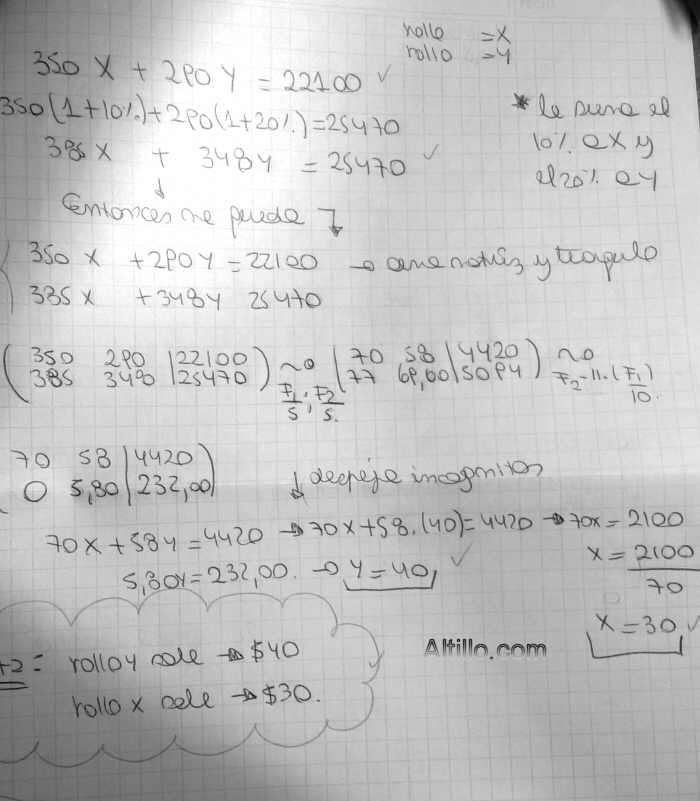 rollo = X
rollo = Y
350 X + 290 Y = 22100 ✓
350(1+10%)+290(1+20%)=25470
385 X + 348 Y = 25470 ✓
* le suma el
10% a X y
el 20% a Y
↓
Entonces me queda ↴
350 X + 290 Y = 22100 → armo matriz y triangulo
385 X + 348 Y 25470
( 350 290 | 22100 ) ~ ( 70 58 | 4420 ) ~
385 348 | 25470 F1/5 ; F2/5. 77 69,00 | 5094 F2-11.(F1)/10.
70 58 | 4420 )
( 0 5,80 | 232,00 ↓ despeje incognitas
70X + 58Y = 4420 → 70X + 58.(40) = 4420 → 70x = 2100
5,80Y = 232,00. → Y = 40 ✓
X = 2100
70
X = 30 ✓
+2 = rollo y sale → $40
rollo x sale → $30.
Altillo.com